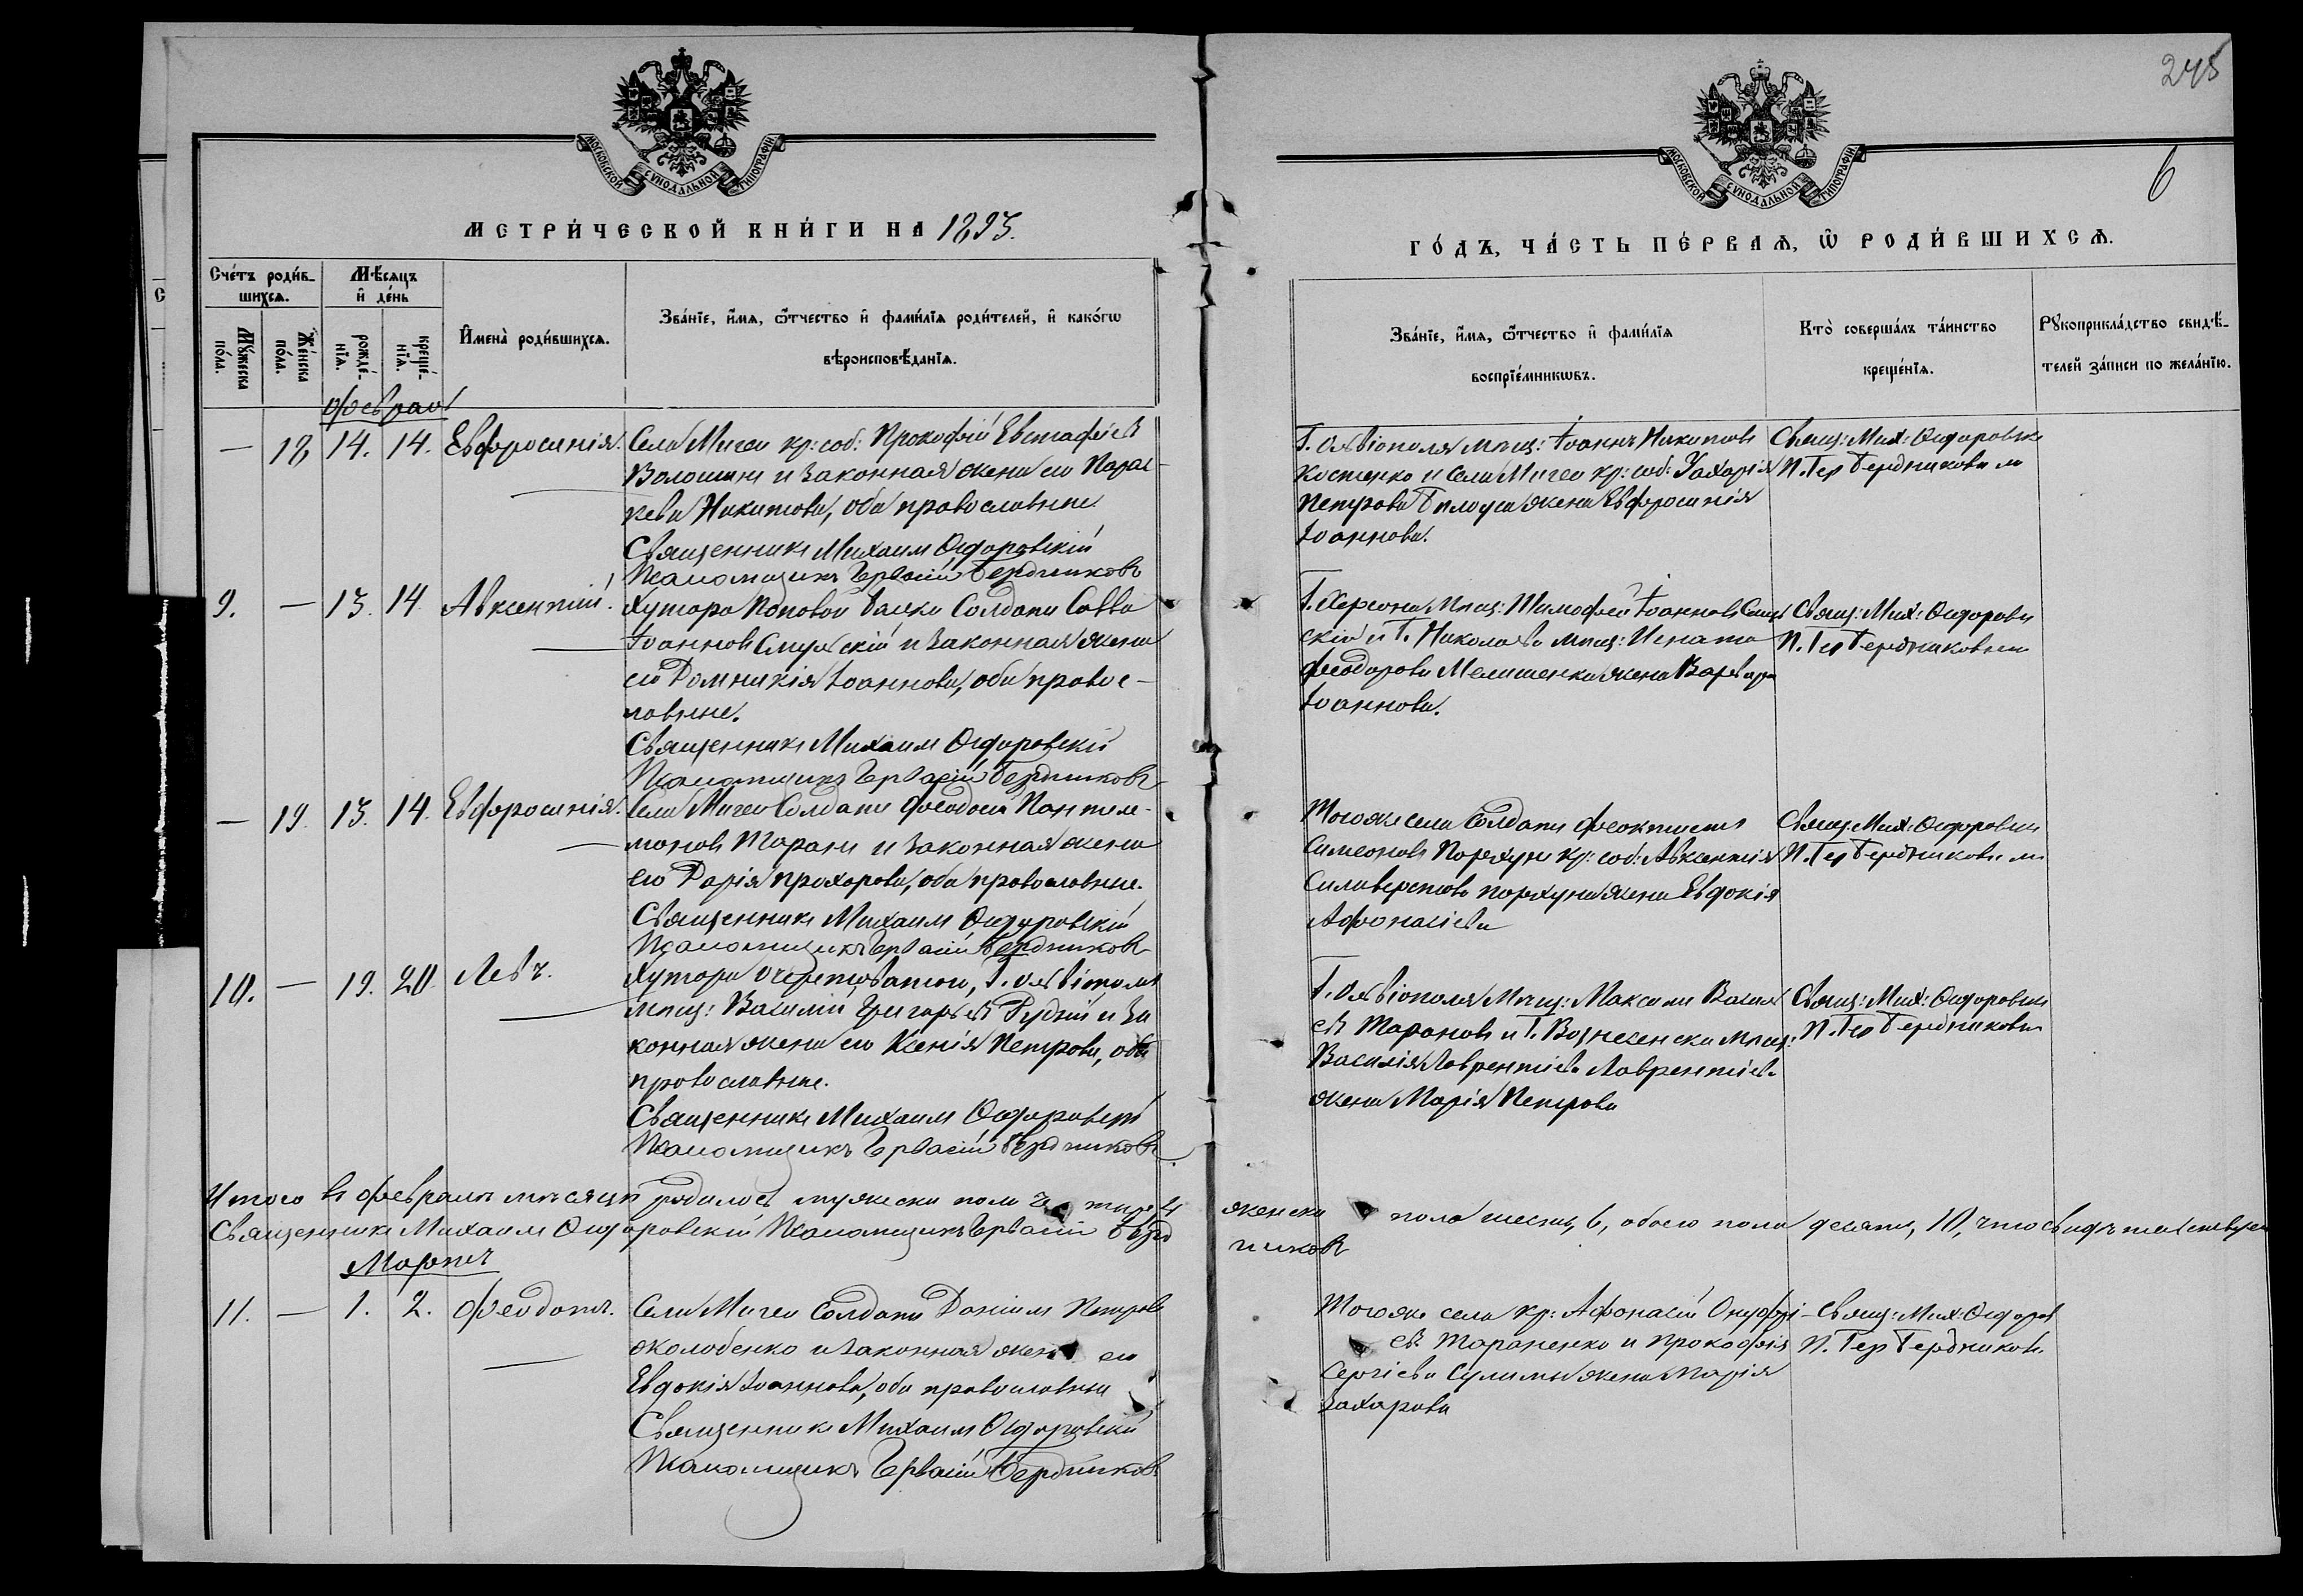 245
6
МОСКОВСКОЙ СѴНОДАЛЬНОЙ ТИПОГРАФІИ
МОСКОВСКОЙ СѴНОДАЛЬНОЙ ТИПОГРАФІИ
МЕТРИ́ЧЕСКОЙ КНИ́ГИ НА 1893.
ГО́ДЪ, ЧА́СТЬ ПЕ́РВАѦ, Ѽ РОДИ́ВШИХСѦ.
Сче́тъ роди́в-
шихсѧ.
Мѣ́сѧцъ
и҆ де́нь
Мꙋ́жеска по́ла.
Же́нска по́ла.
рожде́-
нїѧ.
креще́-
нїѧ.
И҆мена̀ роди́вшихсѧ.
Зва́нїе, и҆́мѧ, ѻ҆́тчество и҆ фами́лїѧ роди́телей, и҆ како́гѡ
вѣроисповѣ́данїѧ.
Зва́нїе, и҆́мѧ, ѻ҆́тчество и҆ фами́лїѧ
воспрїе́мникѡвъ.
Кто̀ соверша́лъ та́инство
креще́нїѧ.
Рꙋкоприкла́дство свидѣ́-
телей за́писи по жела́нїю.
Февраль
— 18 14. 14. Евфросинія. Села Мигеи кр: соб: Прокофій Евстафіевъ
Волошинъ и законная жена его Парас-
кева Никитова, оба православные.
Священникъ Михаилъ Ѳедоровскій
Псаломщикъ Гервасій Бердниковъ
Г. Ольвіополя мѣщ: Іоаннъ Никитовъ
Костенко и села Мигеи кр: соб: Захарія
Петрова Билоуса жена Евфросинія
Іоаннова.
Свящ: Мих: Ѳедоровск
П. Гер Бердниковым
9. — 13. 14. Авксентій. Хутора Поповой балки Солдатъ Савва
Іоанновъ и законная жена
его Домникія Іоаннова, оба правос-
лавные.
Священникъ Михаилъ Ѳедоровскій
Псаломщикъ Гервасій Бердниковъ
Г. Херсона мѣщ: Тимофей Іоанновъ
скій и Г. Николаева мѣщ: Игната
Феодорова Мелишенка жена Варвара
Іоаннова.
Свящ: Мих: Ѳедоровск
П. Гер Бердниковым
— 19. 13. 14. Евфросинія. Села Мигеи Солдатъ Феодосій Пантеле-
моновъ Таранъ и законная жена
его Дарія Прохорова, оба православные.
Священникъ Михаилъ Ѳедоровскій
Псаломщикъ Гервасій Бердниковъ
Тогоже села Солдатъ Феоктистъ
Симеоновъ Порхунъ кр: соб: Авксентія
Силиверстова Порхуна жена Евдокія
Афонасіева
Свящ: Мих: Ѳедоровск
П. Гер Бердниковым
10. — 19. 20. Левъ. Хутора Очеретоватого, Г. Ольвіополя
мѣщ: Василій Григорьевъ Рудый и за
конная жена его Ксенія Петрова, оба
православные.
Священникъ Михаилъ Ѳедоровскій
Псаломщикъ Гервасій Бердниковъ
Г. Ольвіополя мѣщ: Максимъ Василь
евъ Тарановъ и Г. Вознесенска мѣщ:
Василія Лаврентіева Лаврентіева
жена Марія Петрова
Свящ: Мих: Ѳедоровск
П. Гер Бердниковым
Итого въ февралѣ мѣсяцѣ родилось мужеска пола четыре 4 женска пола шесть, 6, обоего пола десять, 10, что свидѣтельствуем
Священникъ Михаилъ Ѳедоровскій Псаломщикъ Гервасій Берд
никовъ
Мартъ
11. — 1. 2. Феодотъ. Села Мигеи Солдатъ Даніилъ Петровъ
Жолобенко и законная жена его
Евдокія Іоаннова, оба православные
Священникъ Михаилъ Ѳедоровскій
Псаломщикъ Гервасій Бердниковъ
Тогоже села кр: Афонасій Онуфрі-
евъ Тараненко и Прокофія
Сергіева Сулимы жена Марія
Захарова
Свящ: Мих: Ѳедоров
П. Гер Бердниковъ